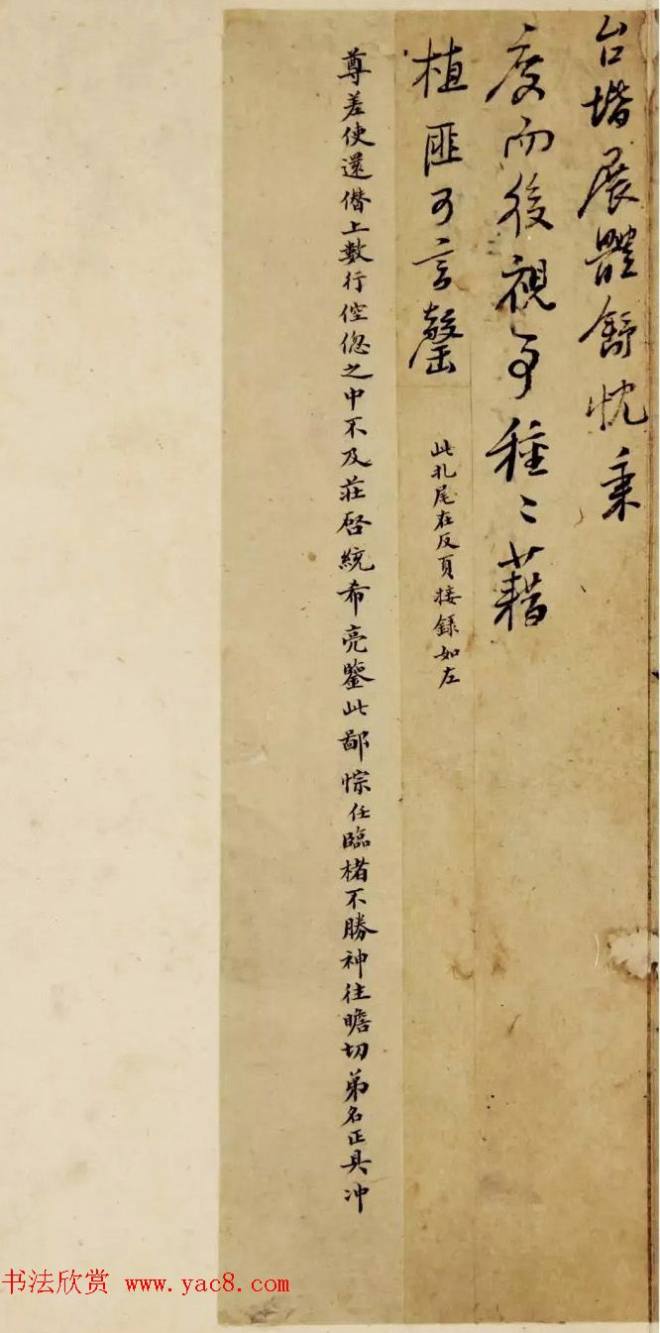 台堦展體舒忱秉
度而後視事種〻藉
植匪可言罄
此札尾在反頁接錄如左
尊差使還僭上數行倥偬之中不及莊啓統希亮鑒此鄙悰任臨楮不勝神往瞻切弟名正具冲
书法欣赏 www.yac8.com